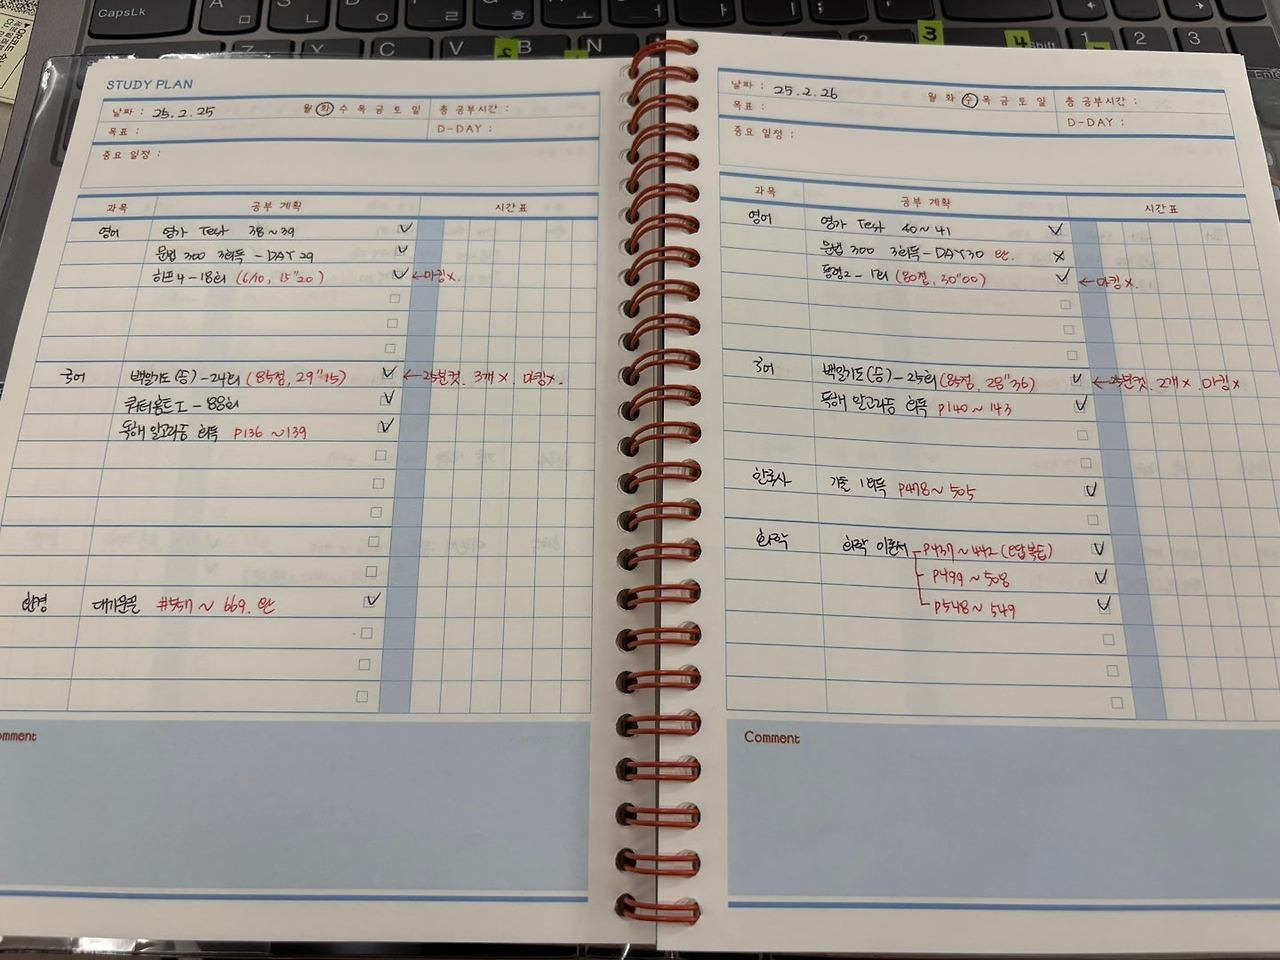 CapsLk
A
S
Z
Y
C
V
B
N
3
4
Shift
1
2
3
Enter
STUDY PLAN
날짜 : 25. 2. 25
월 화 수 목 금 토 일
총 공부시간 :
목표 :
D-DAY :
중요 일정 :
과목 공부 계획 시간표
영어 영가 Test 38~39
문법 300 3회독 - DAY 29
하프4 - 18회 (6/10, 15"20) ←마킹x.
국어 백일기도(송) - 24회 (85점, 29"15) ←25분컷. 3개x. 마킹x.
쿼터홀트 I - 88회
독해 알고리즘 회독 P136 ~139
환경 대기운꿀 #557~ 669. 완
Comment
날짜 : 25. 2. 26
월 화 수 목 금 토 일
총 공부시간 :
목표 :
D-DAY :
중요 일정 :
과목 공부 계획 시간표
영어 영가 Test 40~41
문법 300 3회독 - DAY30 완.
동형2 - 1회 (80점, 30"00) ←마킹x.
국어 백일기도(송) - 25회 (85점, 28"36) ←25분컷. 2개x. 마킹x
독해 알고리즘 회독 P140 ~ 143
한국사 기출 1회독 P478~ 505
화학 화학 이론서 P437~442 (연습복습)
P499~ 508
P548~ 549
Comment